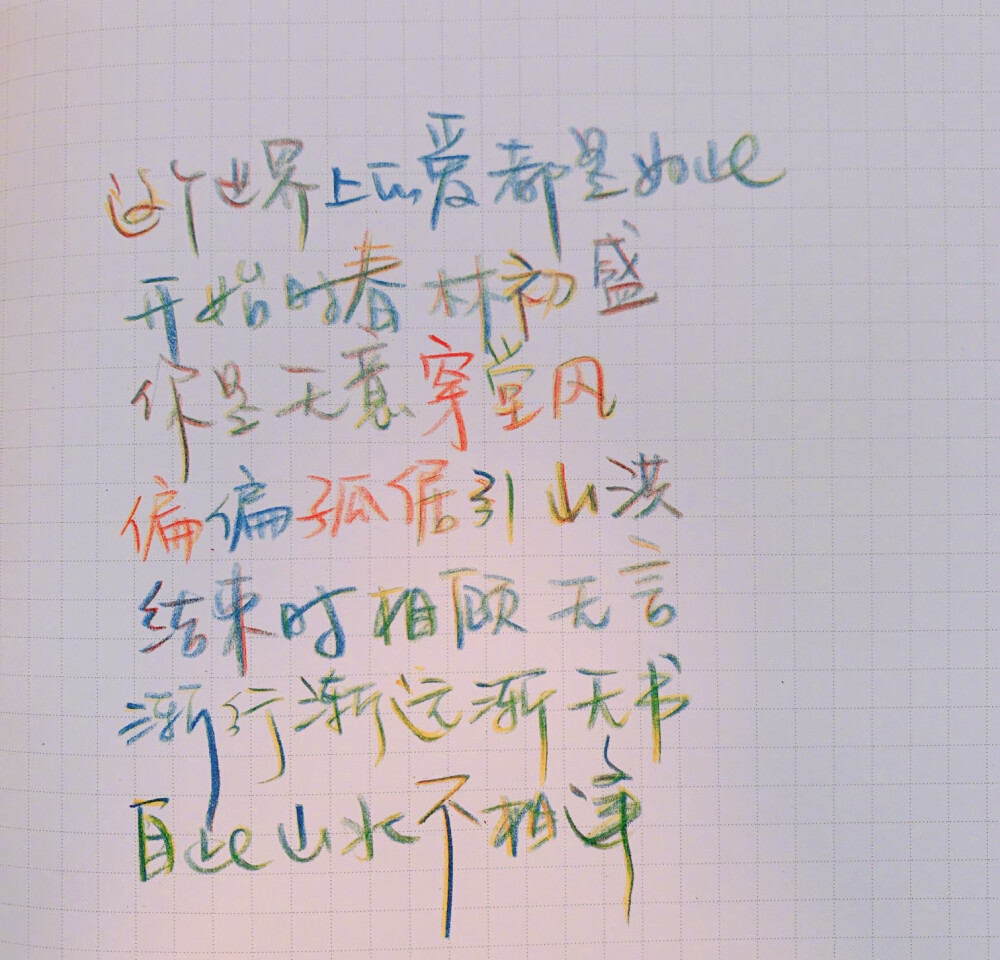 这个世界上的爱都是如此
开始时春林初盛
你是无意穿堂风
偏偏孤倨引山洪
结束时相顾无言
渐行渐远渐无书
自此山水不相逢